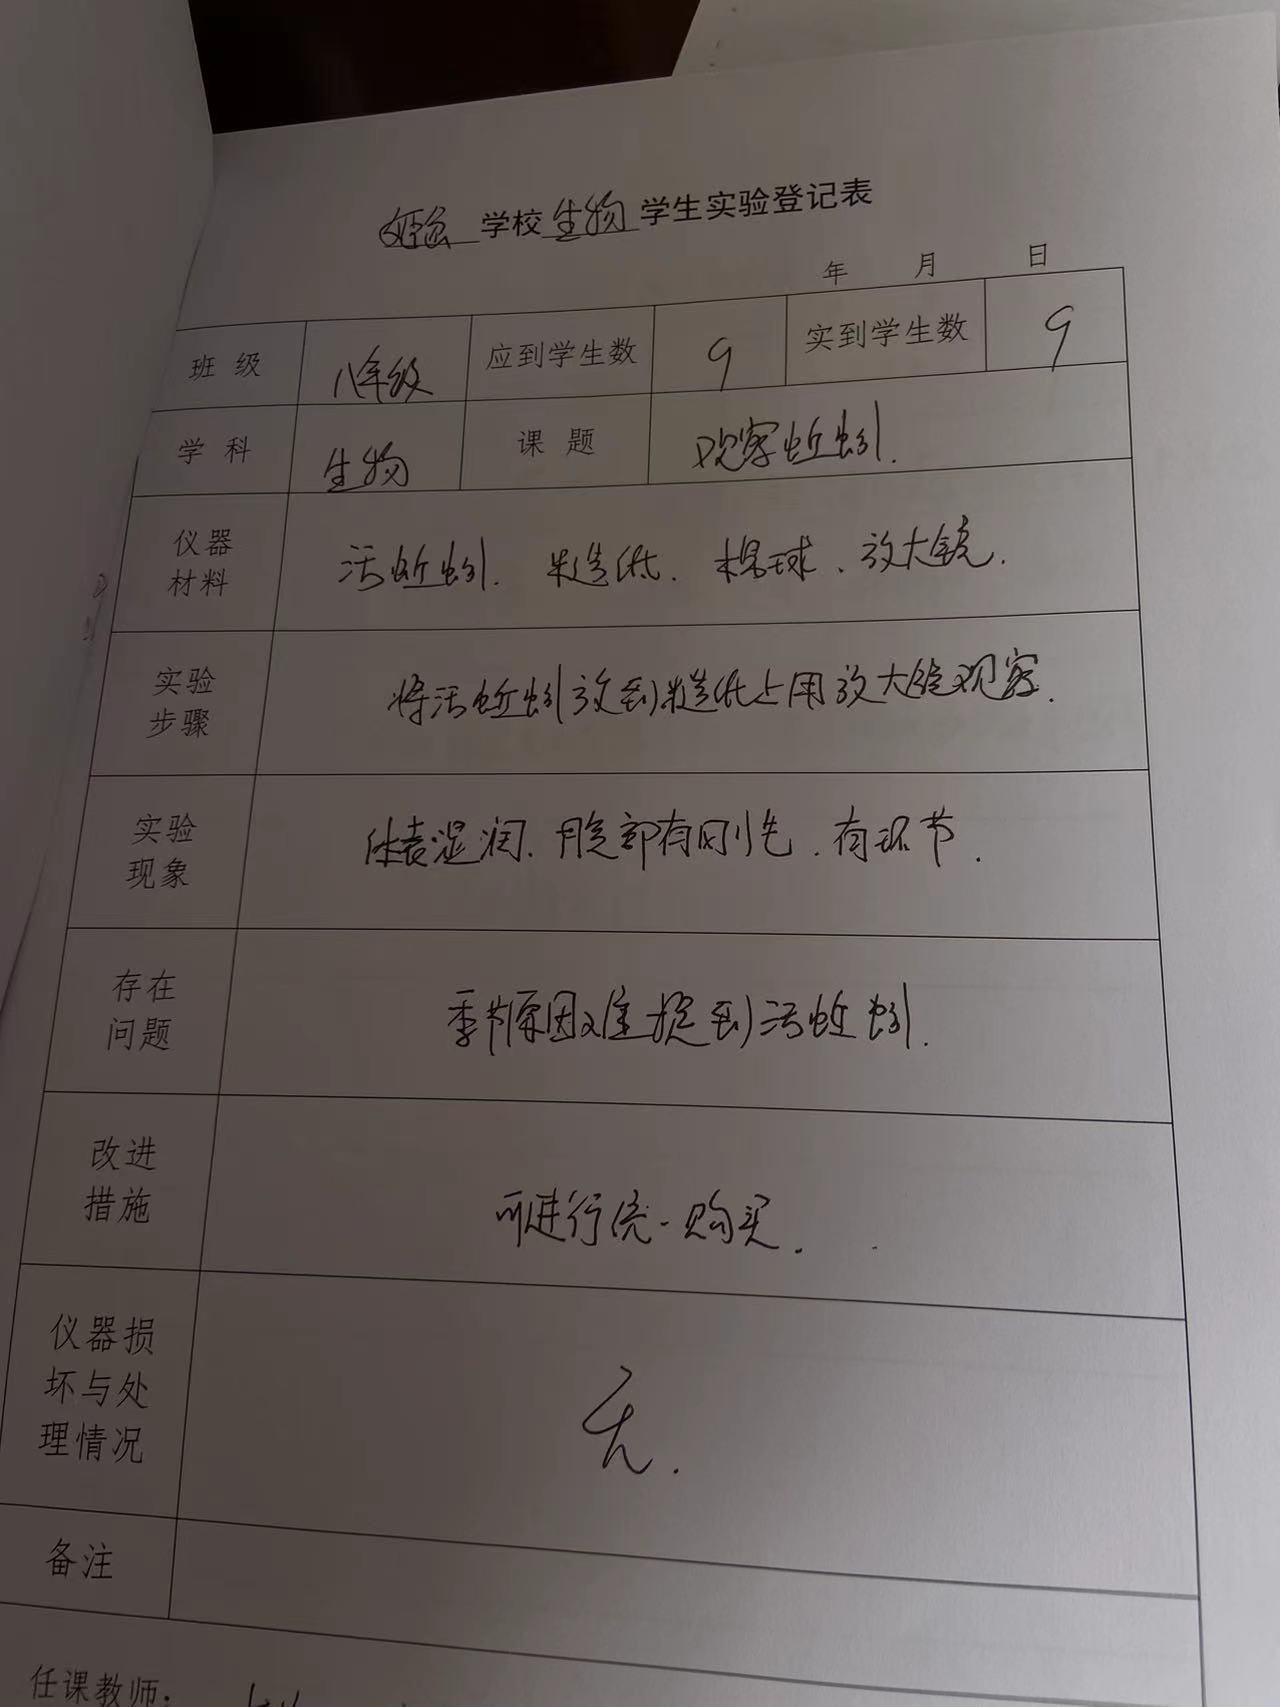 学校生物学生实验登记表
年 月 日
班级 八年级 应到学生数 9 实到学生数 9
学科 生物 课题 观察蚯蚓.
仪器
材料
活蚯蚓. 糙纸. 棉球、放大镜.
实验
步骤
将活蚯蚓放到糙纸上用放大镜观察.
实验
现象
体表湿润. 腹部有刚毛. 有环节.
存在
问题
季节原因难挖到活蚯蚓.
改进
措施
可进行统一购买.
仪器损
坏与处
理情况
无.
备注
任课教师: